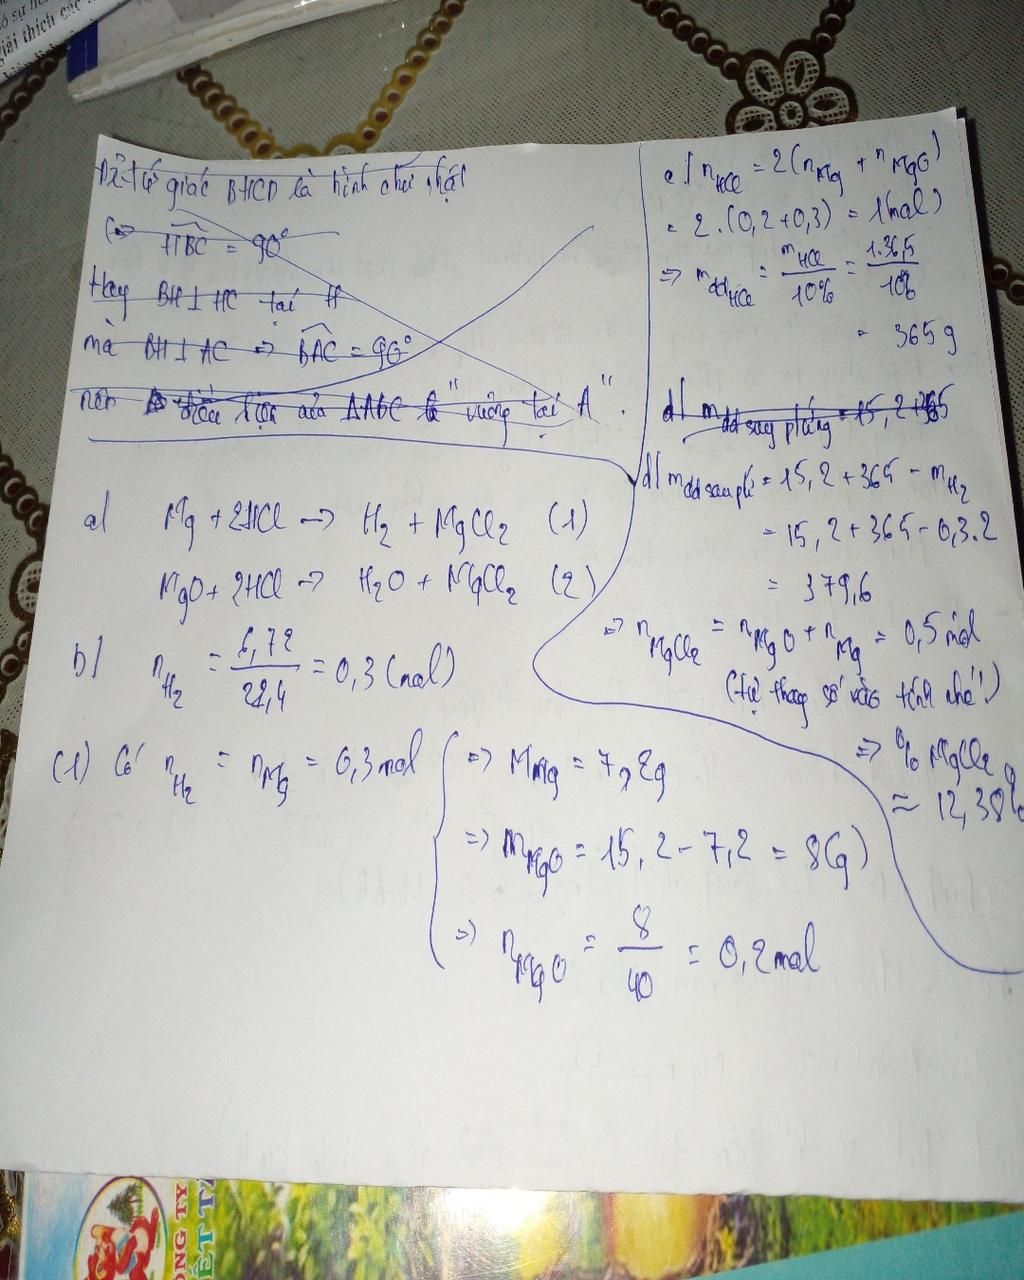 giải thích các
Để tứ giác BHCD là hình chữ nhật
<=> HBC = 90°
Hay BH ⊥ HC tại H
mà BH ⊥ AC => BAC = 90°
nên điều kiện của ΔABC là "vuông tại A".
a/ Mg + 2HCl -> H₂ + MgCl₂ (1)
MgO + 2HCl -> H₂O + MgCl₂ (2)
b/ n_H₂ = 6,72/22,4 = 0,3 (mol)
(1) Có n_H₂ = n_Mg = 0,3 mol
=> M_Mg = 7,2g
=> m_MgO = 15,2 - 7,2 = 8(g)
=> n_MgO = 8/40 = 0,2 mol
c/ n_HCl = 2(n_Mg + n_MgO)
= 2.(0,2+0,3) = 1(mol)
=> m_ddHCl = m_HCl/10% = 1.36,5/10%
= 365g
d/ m_dd sau phứng = 15,2 + 365
d/ m_dd sau pứ = 15,2 + 365 - m_H₂
= 15,2 + 365 - 0,3.2
= 379,6
=> n_MgCl₂ = n_MgO + n_Mg = 0,5 mol
(tự thay số vào tính nhé")
=> % MgCl₂
≈ 12,38%
ÔNG TY
ẾT T